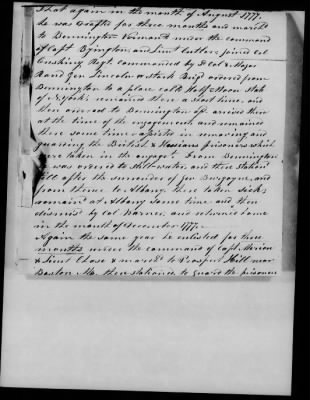 That again in the month of August 1777.
he was drafted for three months and march'd
to Bennington Vermont under the command
of Capt Byington and Lieut Cutler, joined Col
Cushing Regt. commanded by Lt Col & Major
Rand Gen. Lincoln & Stark Brigd ordered from
Bennington to a place called Half-Moon State
of N. York; remained there a short time, and
then moved to Bennington Spr. arrived there
at the time of the engagement and remained
there some time assisted in removing and
guarding the British & Hessians prisoners which
were taken in the engagt. From Bennington
he was ordered to Still-water, and there stationed
till after the surrender of Gen Burgoyne, and
from thence to Albany. there taken sick,
remain'd at Albany some time and then
dismiss'd by Col Warner, and returned home
in the month of December 1777.
Again the same year he enlisted for three
months under the command of Capt.
& Lieut Chase & march'd to Prospect Hill near
Boston Ms. there stationed to guard the prisoners